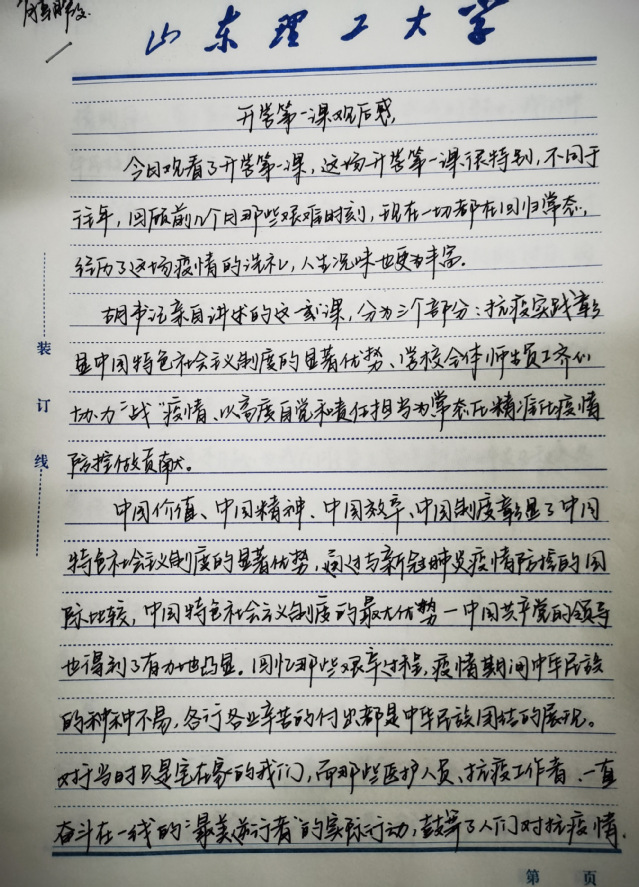 山东理工大学
开学第一课观后感
今日观看了开学第一课，这场开学第一课很特别，不同于
往年，回顾前几个月那些艰难时刻，现在一切都在回归常态，
经历了这场疫情的洗礼，人生况味也更为丰富。
胡书记亲自讲述的这一堂课，分为三个部分：抗疫实践彰
显中国特色社会主义制度的显著优势、学校全体师生员工齐心
协力“战”疫情、以高度自觉和责任担当为常态化精准化疫情
防控做贡献。
中国价值、中国精神、中国效率、中国制度彰显了中国
特色社会主义制度的显著优势，通过与新冠肺炎疫情防控的国
际比较，中国特色社会主义制度的最大优势一中国共产党的领导
也得到了有力地凸显。回忆那些艰辛过程，疫情期间中华民族
的种种不易，各行各业辛苦的付出都是中华民族团结的展现。
对于当时只是宅在家的我们，而那些医护人员、抗疫工作者、一直
奋斗在一线的“最美逆行者”的实际行动，鼓舞了人们对抗疫情
装
订
线
第 页